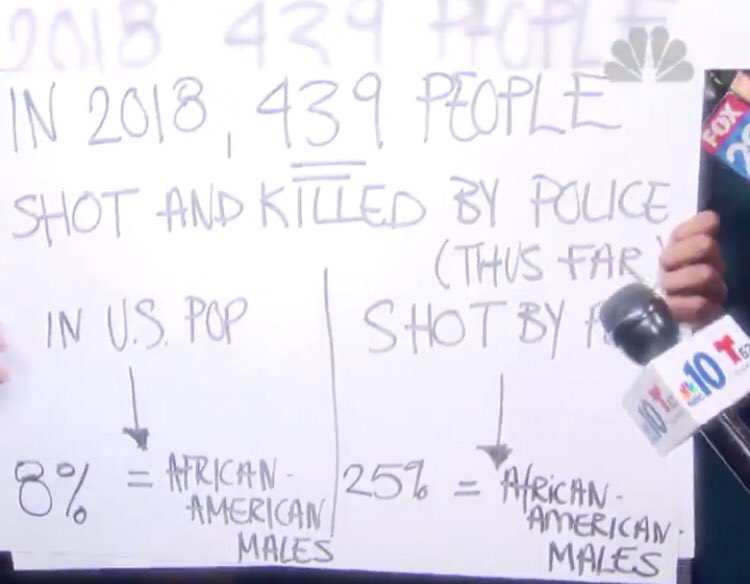 2018 439 PEOPLE
IN 2018, 439 PEOPLE
SHOT AND KILLED BY POLICE
(THUS FAR)
IN U.S. POP
8% = AFRICAN-
AMERICAN
MALES
SHOT BY
25% = AFRICAN-
AMERICAN
MALES
FOX
29
10
NBC 10 T 62